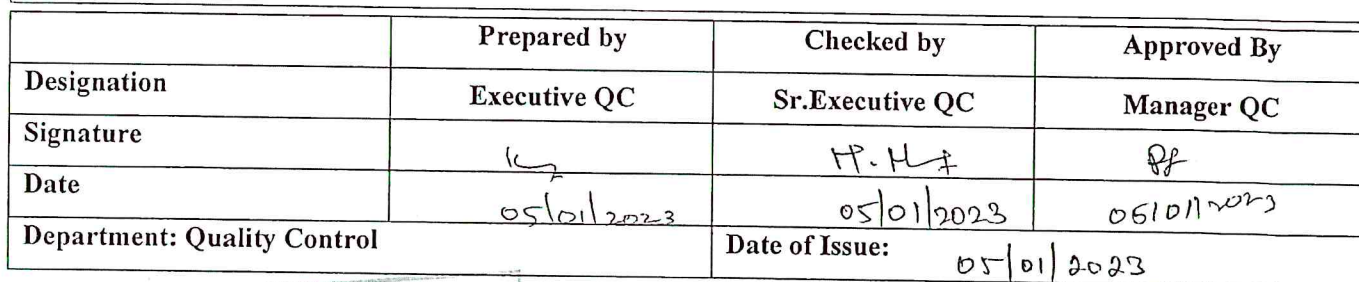 Prepared by Checked by Approved By
Designation Executive QC Sr.Executive QC Manager QC
Signature
Date 05/01/2023 05/01/2023 05/01/2023
Department: Quality Control Date of Issue: 05/01/2023